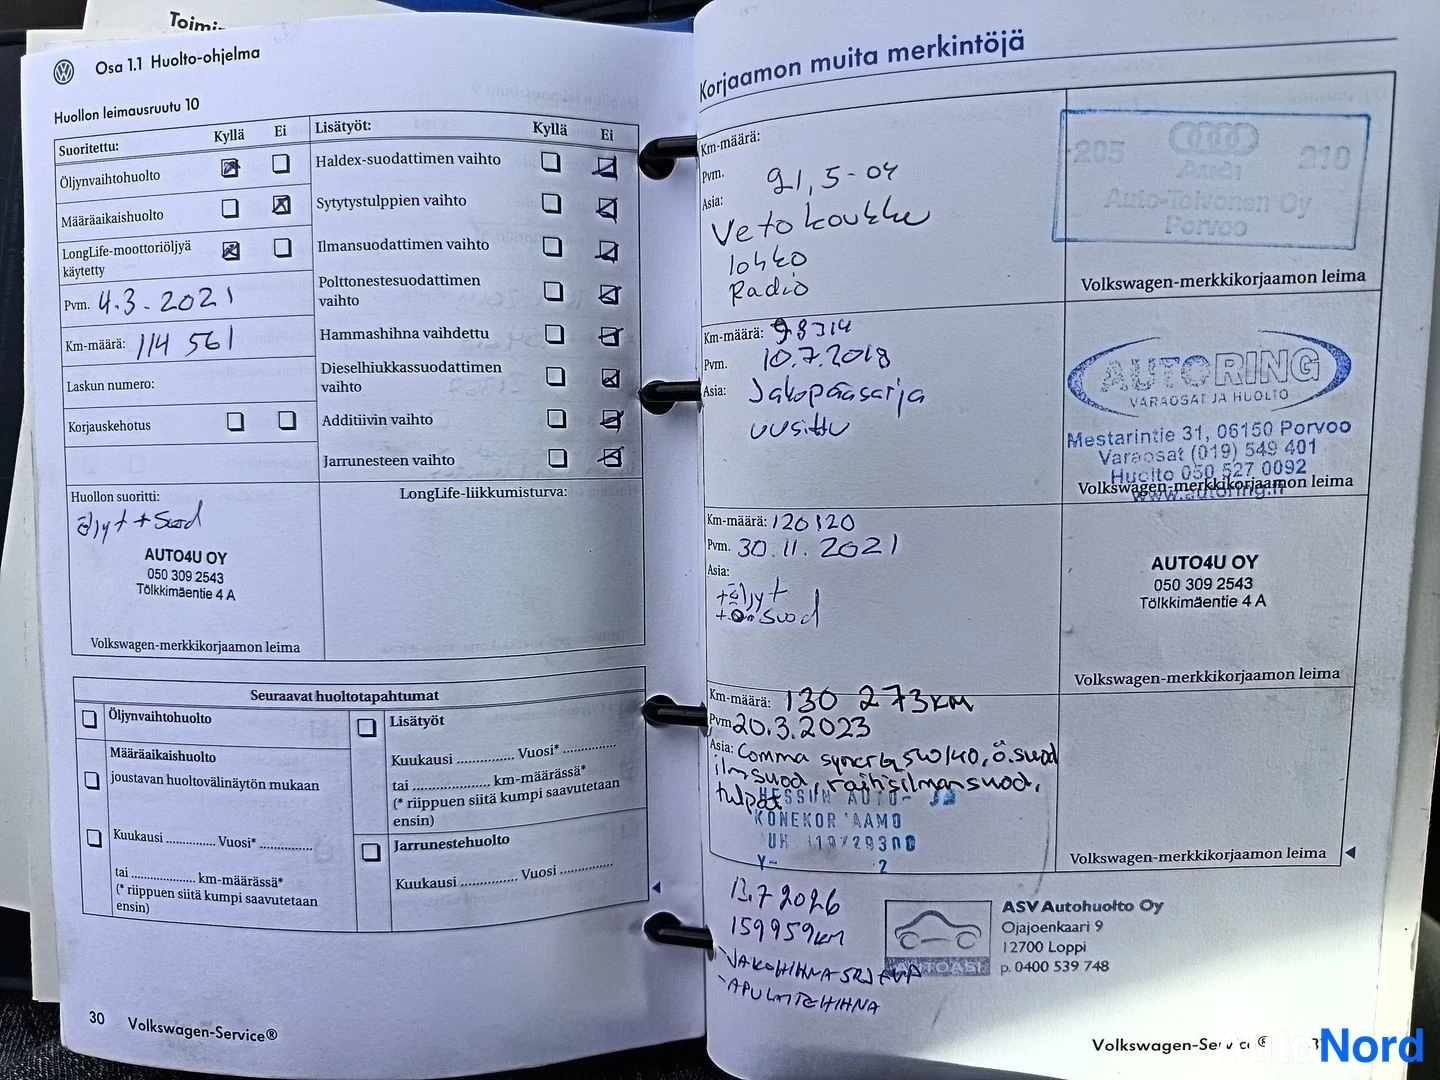 Toimi
Osa 1.1 Huolto-ohjelma
Huollon leimausruutu 10
Suoritettu: Kyllä Ei
Öljynvaihtohuolto
Määräaikaishuolto
LongLife-moottoriöljyä
käytetty
Pvm. 4.3.2021
Km-määrä: 114 561
Laskun numero:
Korjauskehotus
Lisätyöt: Kyllä Ei
Haldex-suodattimen vaihto
Sytytystulppien vaihto
Ilmansuodattimen vaihto
Polttonestesuodattimen
vaihto
Hammashihna vaihdettu
Dieselhiukkassuodattimen
vaihto
Additiivin vaihto
Jarrunesteen vaihto
Huollon suoritti:
öljyt + suod
AUTO4U OY
050 309 2543
Tölkkimäentie 4 A
Volkswagen-merkkikorjaamon leima
LongLife-liikkumisturva:
Seuraavat huoltotapahtumat
Öljynvaihtohuolto
Määräaikaishuolto
joustavan huoltovälinäytön mukaan
Kuukausi .............. Vuosi* ..............
tai .................... km-määrässä*
(* riippuen siitä kumpi saavutetaan
ensin)
Lisätyöt
Kuukausi .............. Vuosi* ..............
tai .................... km-määrässä*
(* riippuen siitä kumpi saavutetaan
ensin)
Jarrunestehuolto
Kuukausi .............. Vuosi ..............
30 Volkswagen-Service®
Korjaamon muita merkintöjä
Km-määrä:
Pvm. 21.5-04
Asia:
Vetokoukku
lohko
Radio
205 210
Audi
Auto-Toivonen Oy
Porvoo
Volkswagen-merkkikorjaamon leima
Km-määrä: 98314
Pvm. 10.7.2018
Asia: Jakopääsarja
uusittu
AUTORING
VARAOSAT JA HUOLTO
Mestarintie 31, 06150 Porvoo
Varaosat (019) 549 401
Huolto 050 527 0092
www.autoring.fi
Volkswagen-merkkikorjaamon leima
Km-määrä: 120120
Pvm. 30.11.2021
Asia:
+öljyt
+ö suod
AUTO4U OY
050 309 2543
Tölkkimäentie 4 A
Volkswagen-merkkikorjaamon leima
Km-määrä: 130 273KM
Pvm 20.3.2023
Asia: Comma 5W/40, ö.suod
ilmsuod, raitisilmansuod,
tulpat
HESSUN AUTO- JA
Volkswagen-merkkikorjaamon leima
13.7 2026
159959KM
-JAKOHIHNASRJ+VP
-APULAITEHIHNA
AUTOASI
ASV Autohuolto Oy
Ojajoenkaari 9
12700 Loppi
p. 0400 539 748
Volkswagen-Service®
Nord